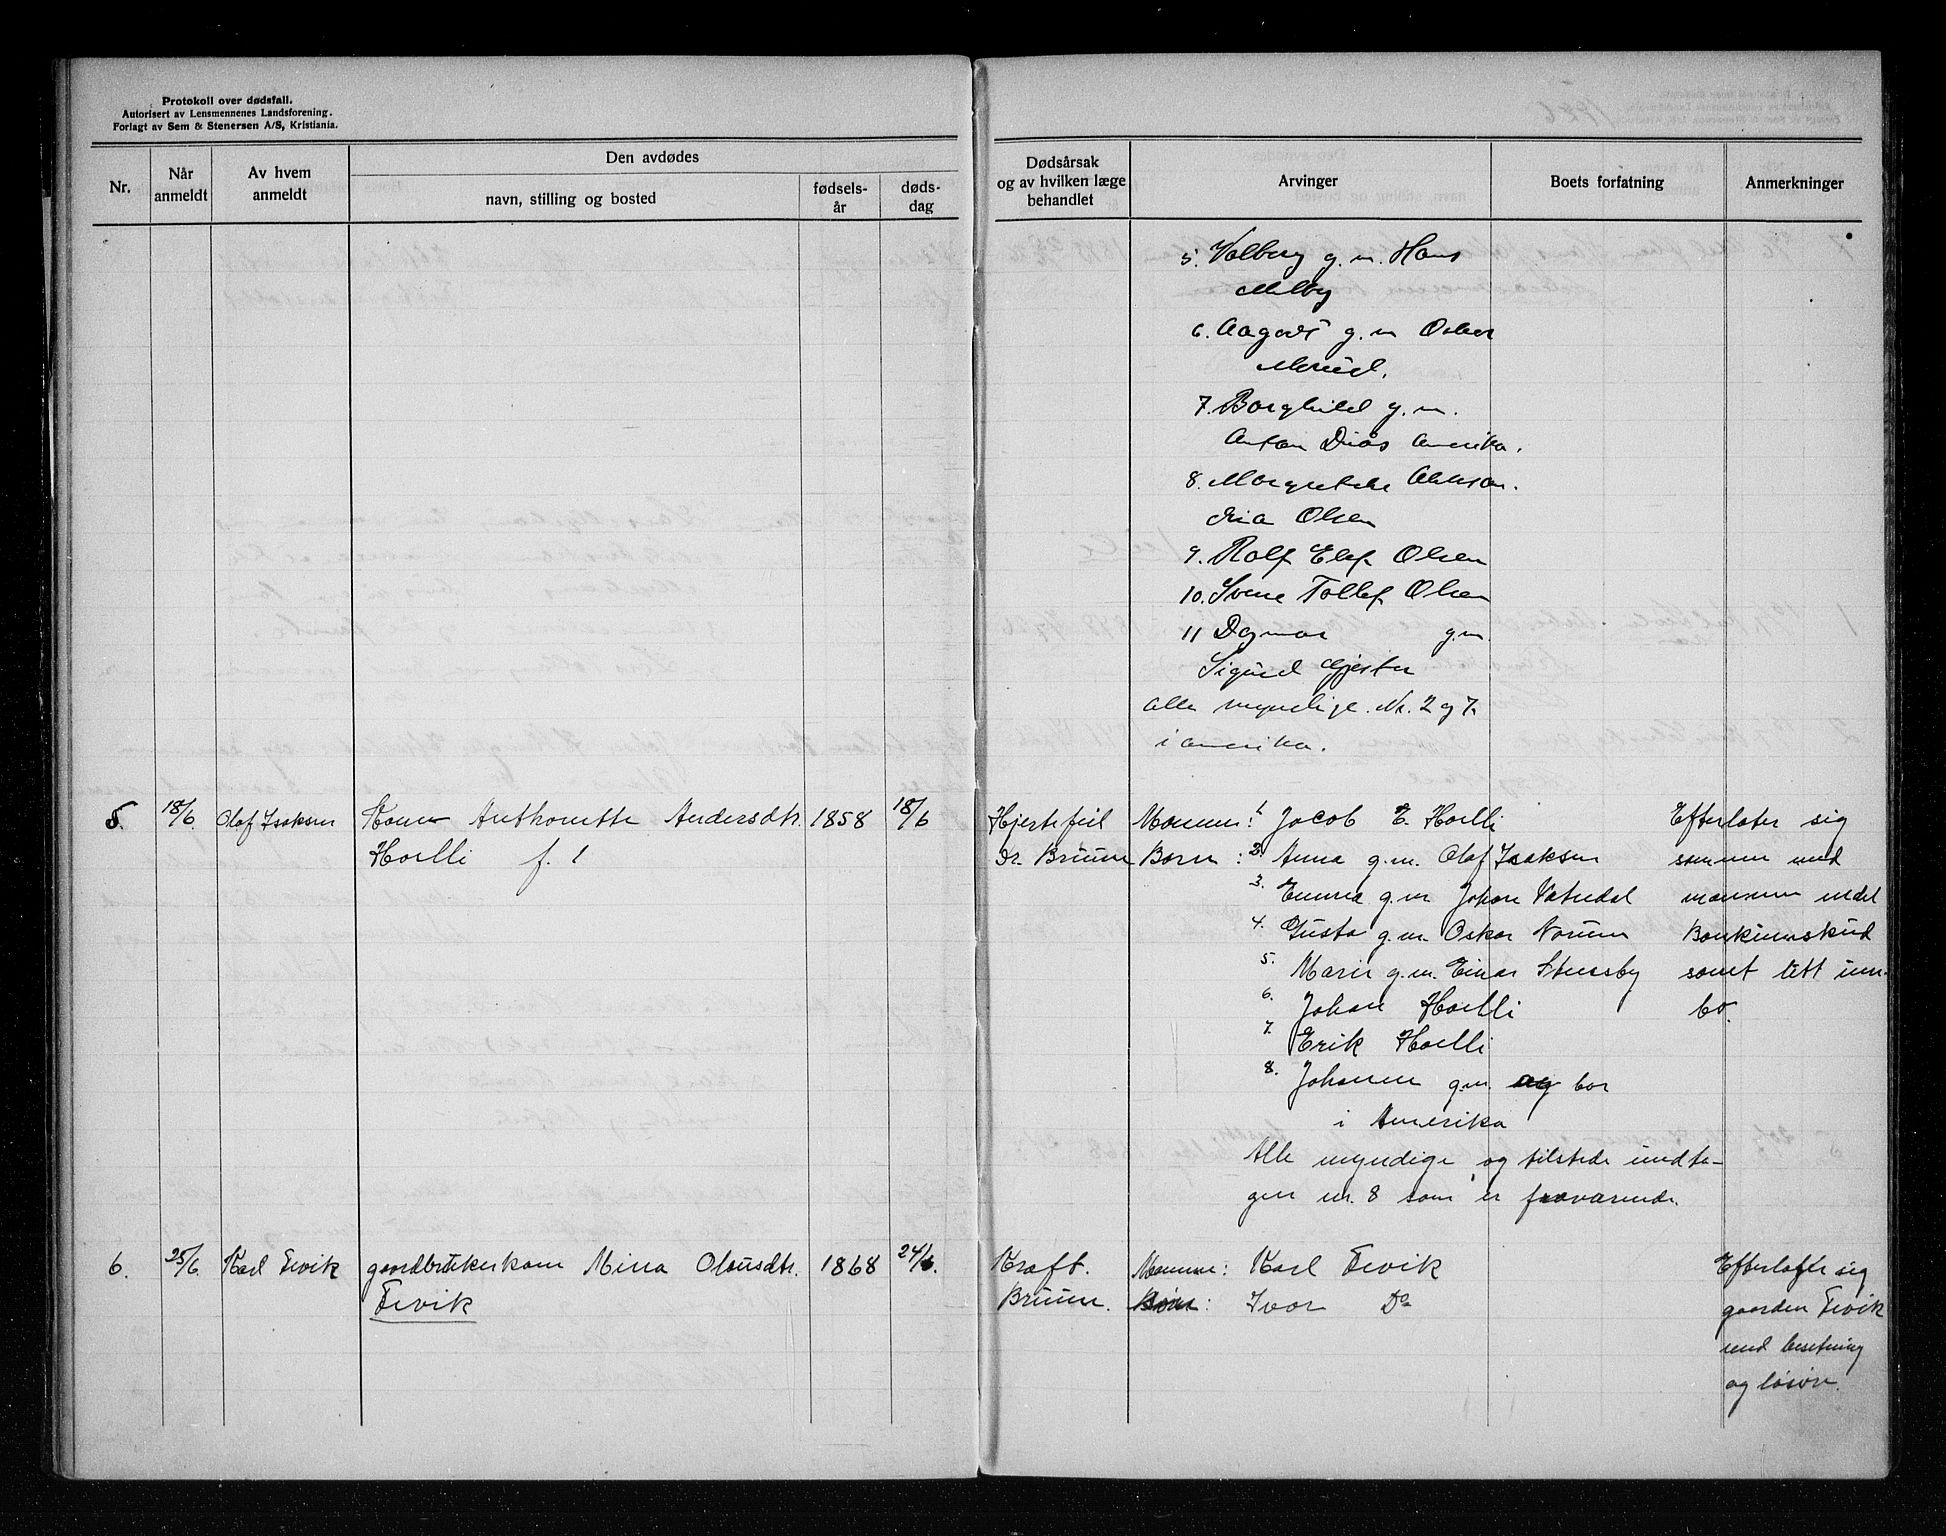 Protokoll over dødsfall.
Autorisert av Lensmennenes Landsforening.
Forlagt av Sem & Stenersen A/S, Kristiania.
Nr.
Når anmeldt
Av hvem anmeldt
Den avdødes
navn, stilling og bosted
fødsels-år
døds-dag
Dødsårsak og av hvilken læge behandlet
Arvinger
Boets forfatning
Anmerkninger
5. Valberg g.m. Hans
Melby
6. Aagodt g.m Oskar
Mørud.
7. Borghild g.m.
Anton Amerika.
8. Margrethe
Olsen
9. Rolf Elef Olsen
10. Svene Tollef Olsen
11 Dagmar g.m.
Sigurd Gjester
alle myndige. Nr. 2 og 7.
i amerika.
5. 18/6. Olaf Isaksen Kone Anthonette Andersdtr. 1858 18/6
Hoelli f. l
Hjertefeil
Dr. Bruun
Mannen: 1 Jacob E. Hoelli
Børn: 2. Anna g.m. Olaf Isaksen
3. Emma g.m Johan Vatndal
4. Gusta g.m. Oskar Norum
5. Marie g.m. Einar Stensby
6. Johan Hoelli
7. Erik Hoelli
8. Johanne g.m. og bor
i Amerika
Alle myndige og tilstede undta-
gen nr. 8 som er fraværende.
Efterlater sig
sammen med
mannen endel
Bankinnskud
samt litt inn-
bo.
6. 25/6. Karl Tevik gaardbrukerkone Mina Olausdtr. 1868 24/6.
Tevik
Kræft.
Bruun.
Mannen: Karl Tevik
Børn: Ivar Do
Efterlater sig
gaarden Tevik
med besetning
og løsøre.